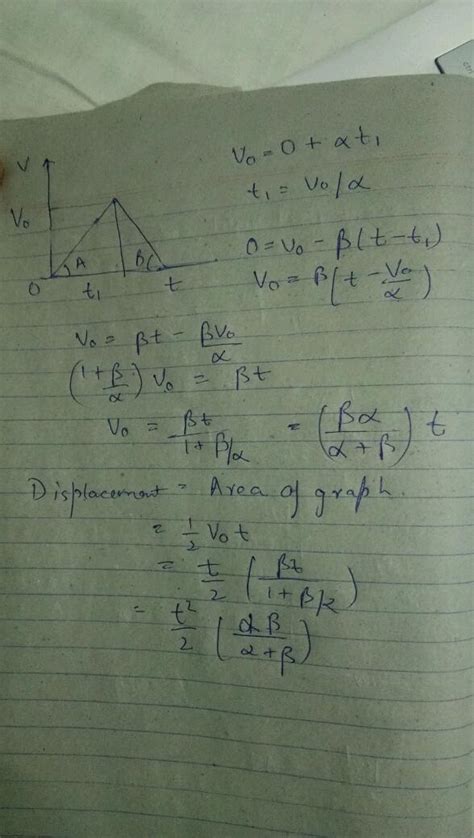 V
V₀
A
B
O
t₁
t
V₀ = 0 + αt₁
t₁ = V₀/α
0 = V₀ - β(t - t₁)
V₀ = β(t - V₀/α)
V₀ = βt - βV₀/α
(1 + β/α) V₀ = βt
V₀ = βt/(1 + β/α) = (βα/(α + β)) t
Displacement = Area of graph.
= 1/2 V₀ t
= t/2 (βt/(1 + β/α))
= t²/2 (αβ/(α + β))